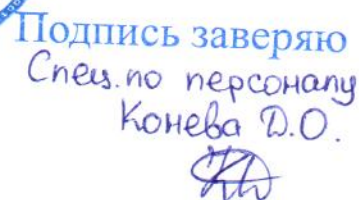 Подпись заверяю
Спец. по персоналу
Конева Д.О.